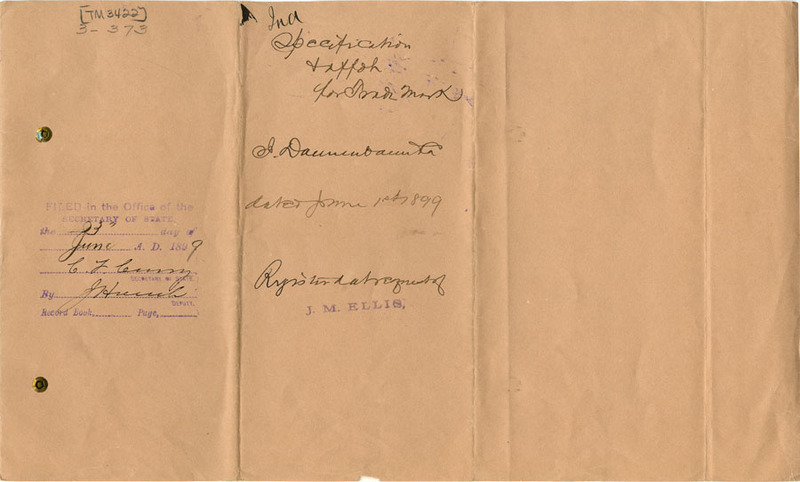 [TM3422]
3-373
FILED in the Office of the
SECRETARY OF STATE
the 23rd day of
June A. D. 1899
C F Curry
SECRETARY OF STATE.
By J Hoesch
DEPUTY.
Record Book, Page,
Ind
Specification
& affdt
for Trade Mark
dated June 1st 1899
Registered at request of
J. M. ELLIS,